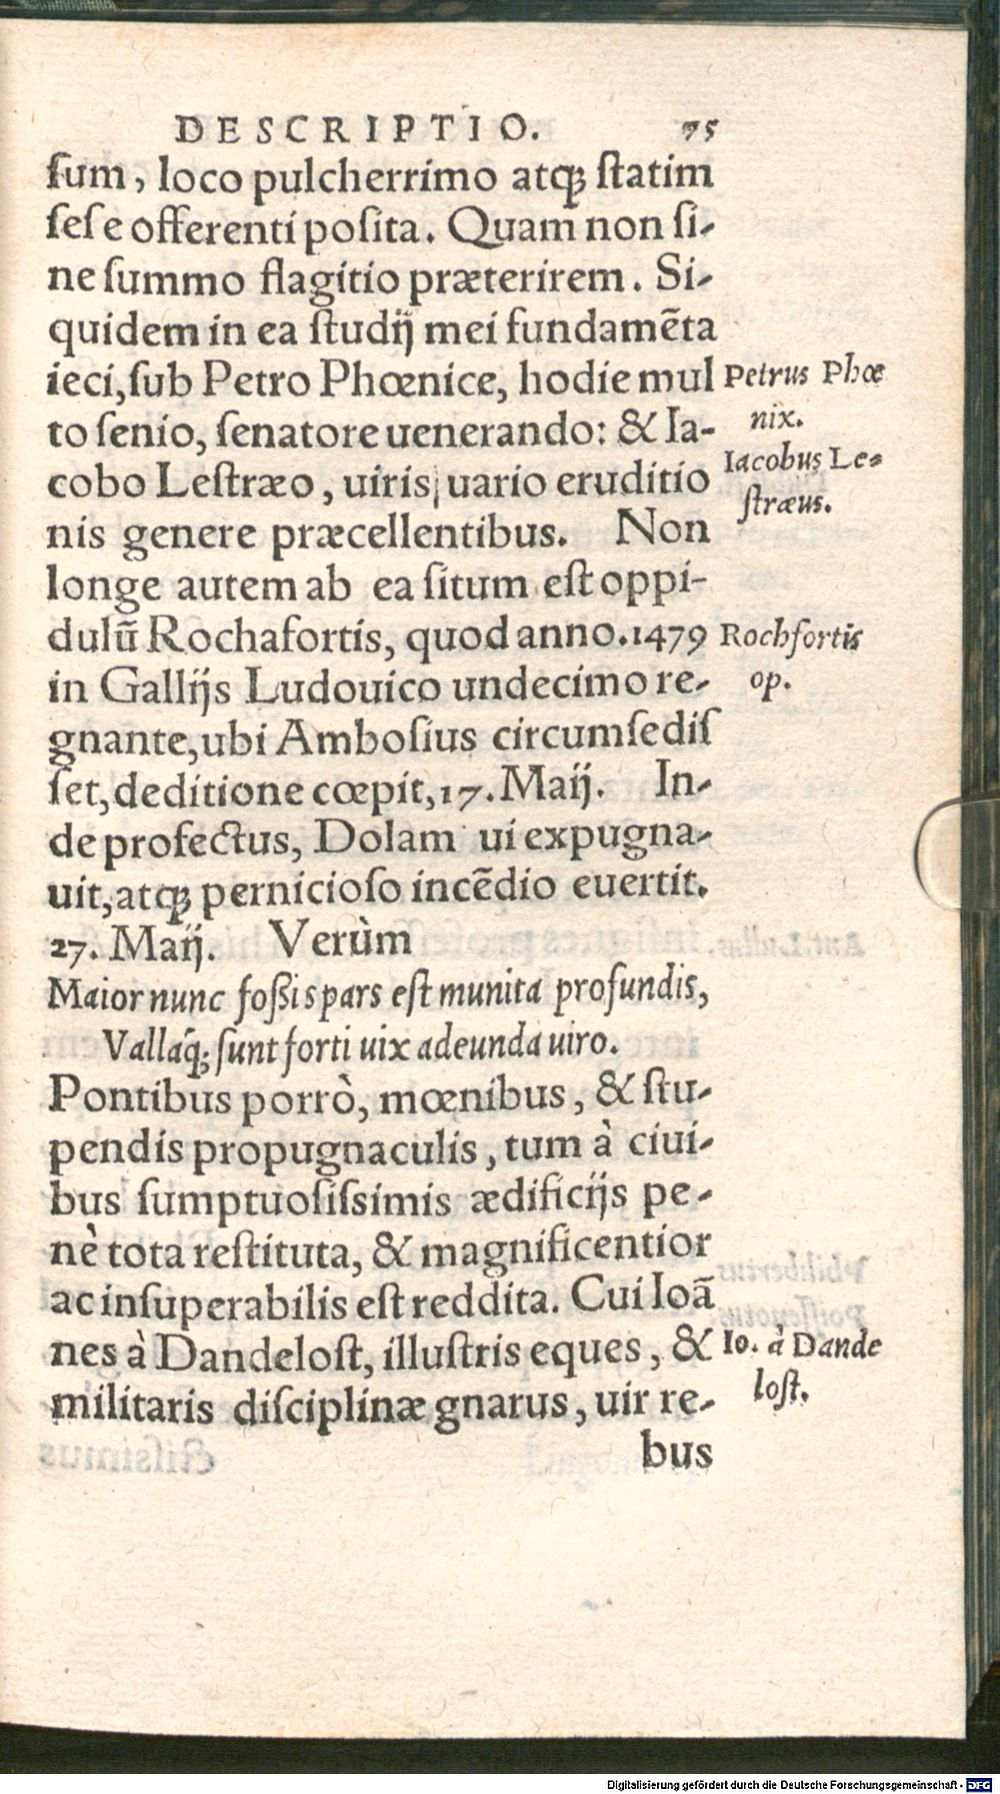 DESCRIPTIO. 75
ſum, loco pulcherrimo atq́ꝫ ſtatim
ſeſe offerenti poſita. Quam non ſi-
ne ſummo flagitio præterirem. Si-
quidem in ea ſtudij mei fundamẽta
ieci, ſub Petro Phœnice, hodie mul
Petrus Phœ
nix.
to ſenio, ſenatore uenerando: & Ia-
cobo Leſtræo, uiris uario eruditio
Iacobus Le-
ſtræus.
nis genere præcellentibus. Non
longe autem ab ea ſitum eſt oppi-
dulũ Rochafortis, quod anno. 1479
Rochfortis
op.
in Gallijs Ludouico undecimo re-
gnante, ubi Ambosius circumſediſ
ſet, deditione cœpit, 17. Maij. In-
de profectus, Dolam ui expugna-
uit, atq́ꝫ pernicioſo incẽdio euertit.
27. Maij. Verùm
Maior nunc foßis pars eſt munita profundis,
Vallaq́; ſunt forti uix adeunda uiro.
Pontibus porrò, mœnibus, & ſtu-
pendis propugnaculis, tum à ciui-
bus ſumptuoſiſsimis ædificijs pe-
nè tota reſtituta, & magnificentior
ac inſuperabilis eſt reddita. Cui Ioã
nes à Dandeloſt, illuſtris eques, &
Io. à Dande
loſt.
militaris diſciplinæ gnarus, uir re-
bus
Digitalisierung gefördert durch die Deutsche Forschungsgemeinschaft - DFG